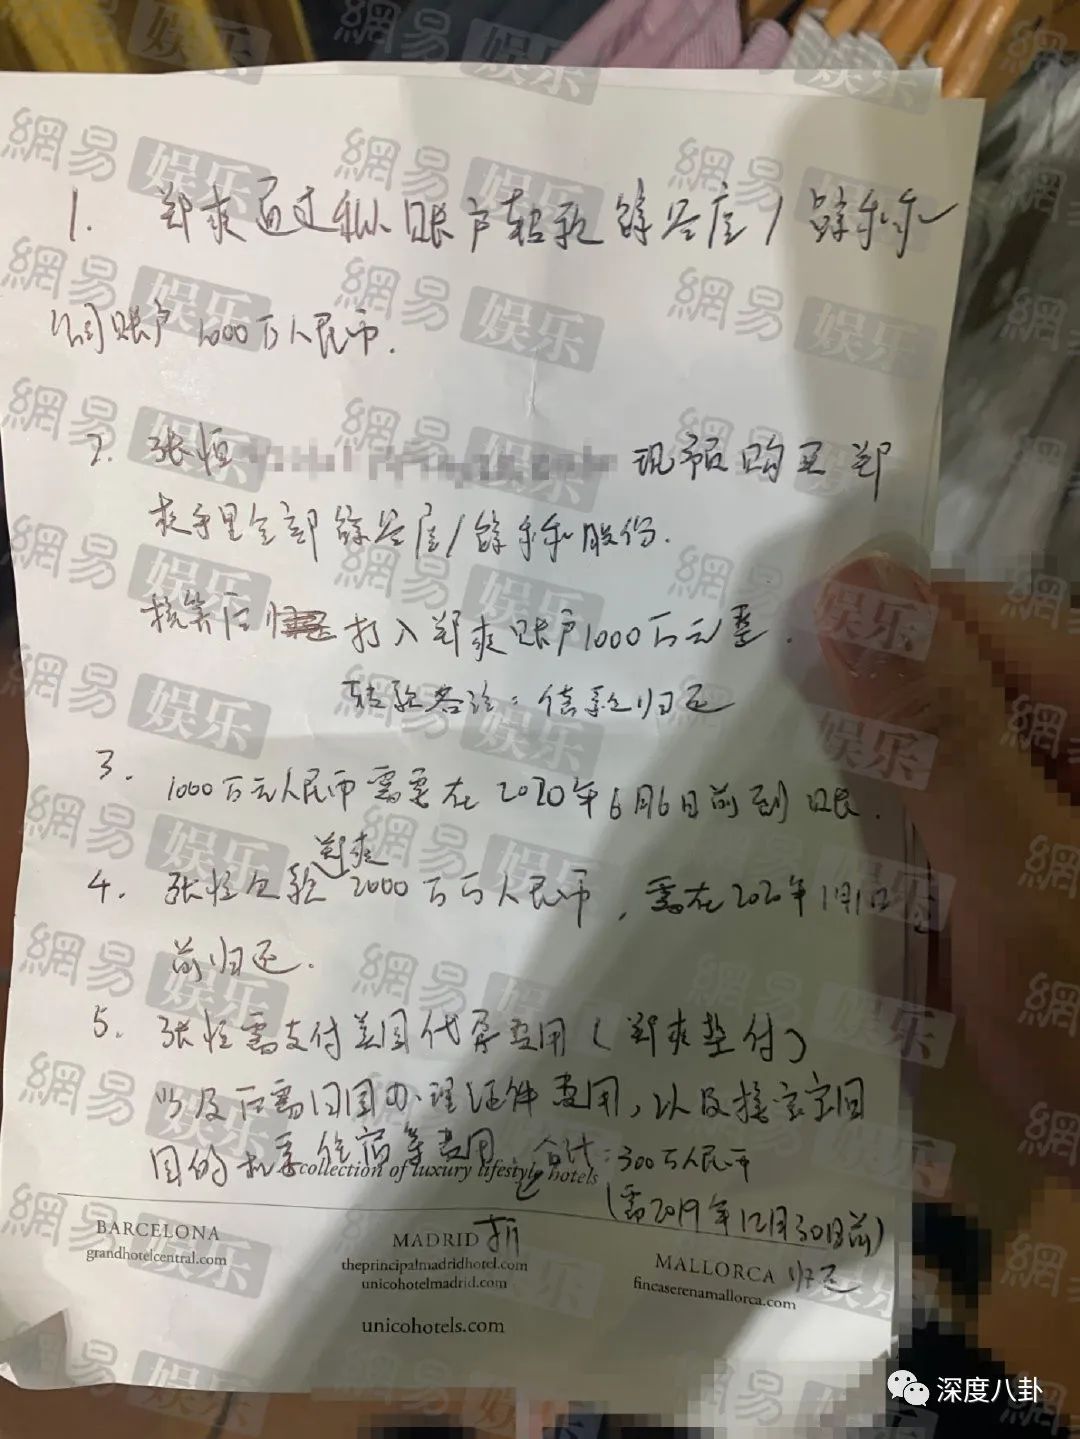 1. 郑爽通过私人账户转款馀谷度/馀禾禾
公司账户1000万人民币.
2. 张恒 现预购买郑
爽手里全部馀谷度/馀禾禾股份.
核算后 打入郑爽账户1000万元整.
转款备注:借款归还
3. 1000万元人民币需要在2020年6月6日前到账.
郑爽
4. 张恒欠款 2000万 人民币,需在2020年1月1日
前归还.
5. 张恒需支付美国代孕费用(郑爽垫付)
以及后需回国办理证件费用,以及接宝宝回
国的机票住宿等费用 合计:300万人民币
(需2019年12月30日前)
归还
collection of luxury lifestyle hotels
BARCELONA
grandhotelcentral.com
MADRID
theprincipalmadridhotel.com
unicohotelmadrid.com
MALLORCA
fincaserenamallorca.com
unicohotels.com
網易娱乐
深度八卦